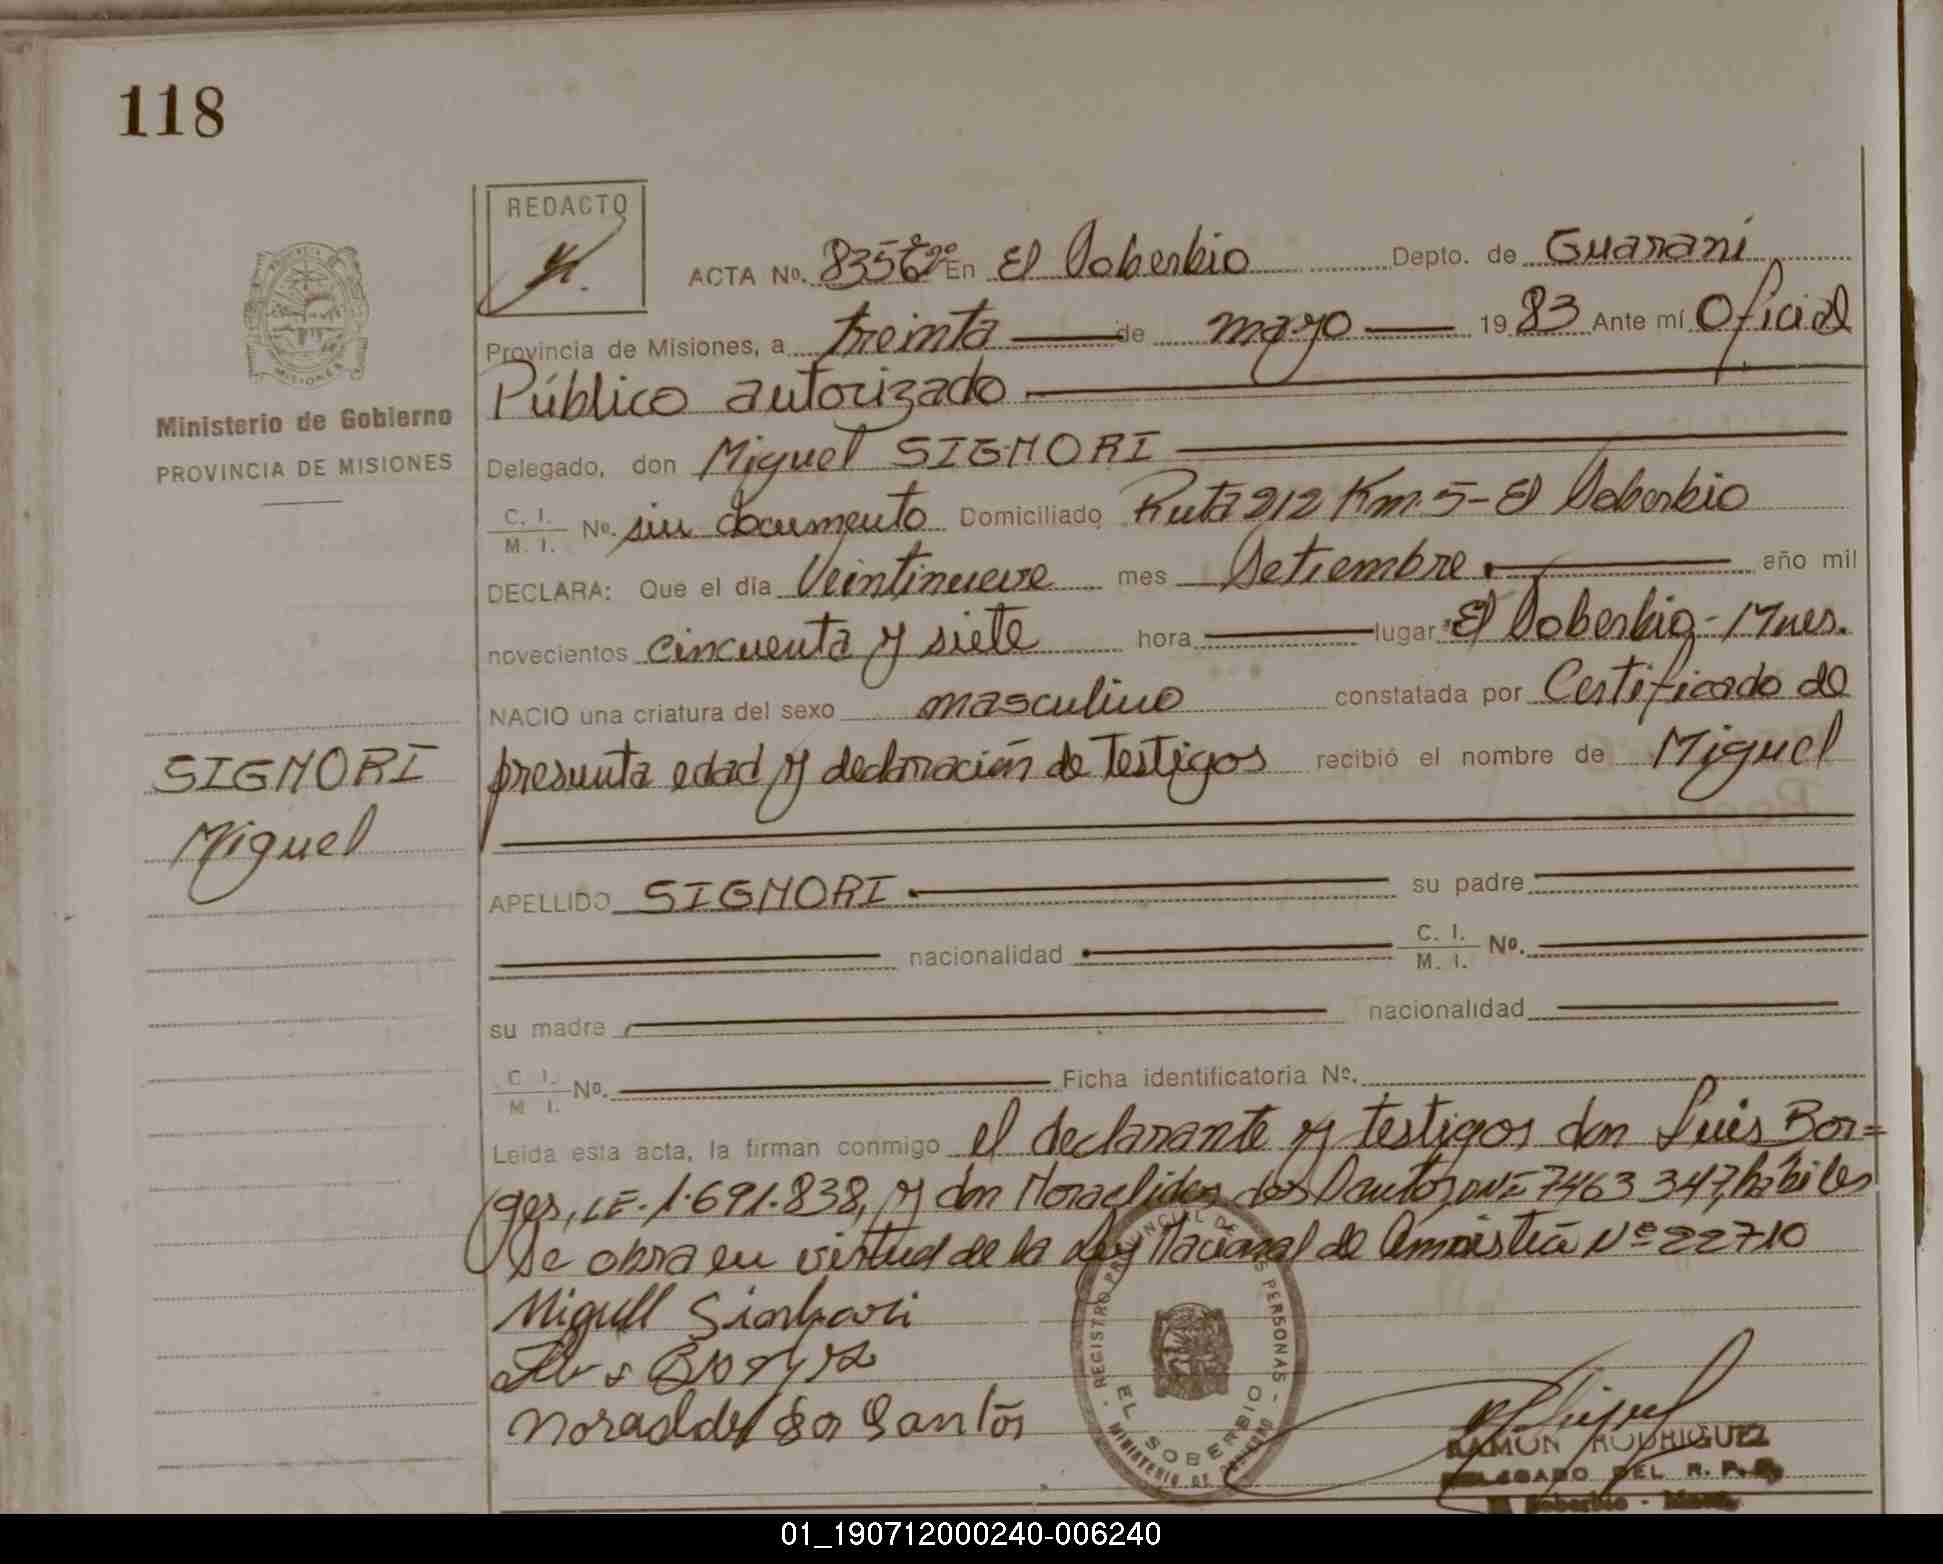 118
REDACTO
ACTA Nº. 8356 En El Soberbio Depto. de Guaraní
Provincia de Misiones, a treinta de mayo 1983 Ante mí Oficial
Público autorizado
Ministerio de Gobierno
PROVINCIA DE MISIONES
Delegado, don Miguel SIGNORI
C. I. M. I. Nº. sin documento Domiciliado Ruta 212 Km. 5 - El Soberbio
DECLARA: Que el día Veintinueve mes Setiembre año mil
novecientos cincuenta y siete hora lugar El Soberbio - Mnes.
NACIO una criatura del sexo masculino constatada por Certificado de
SIGNORI
Miguel
presunta edad y declaración de testigos recibió el nombre de Miguel
APELLIDO SIGNORI su padre
nacionalidad C. I. M. I. Nº.
su madre nacionalidad
C. I. M. I. Nº. Ficha identificatoria Nº.
Leída esta acta, la firman conmigo el declarante y testigos don Luis Bor=
ges, LE. 1.691.838, y don Noraclides dos Santos, DNI 7463347, hábiles
Se obra en virtud de la Ley Nacional de Amnistía Nº 22710
REGISTRO PROVINCIAL DE LAS PERSONAS
EL SOBERBIO
MINISTERIO DE GOBIERNO
RAMON RODRIGUEZ
DELEGADO DEL R. P. P.
El Soberbio - Mnes.
01_190712000240-006240